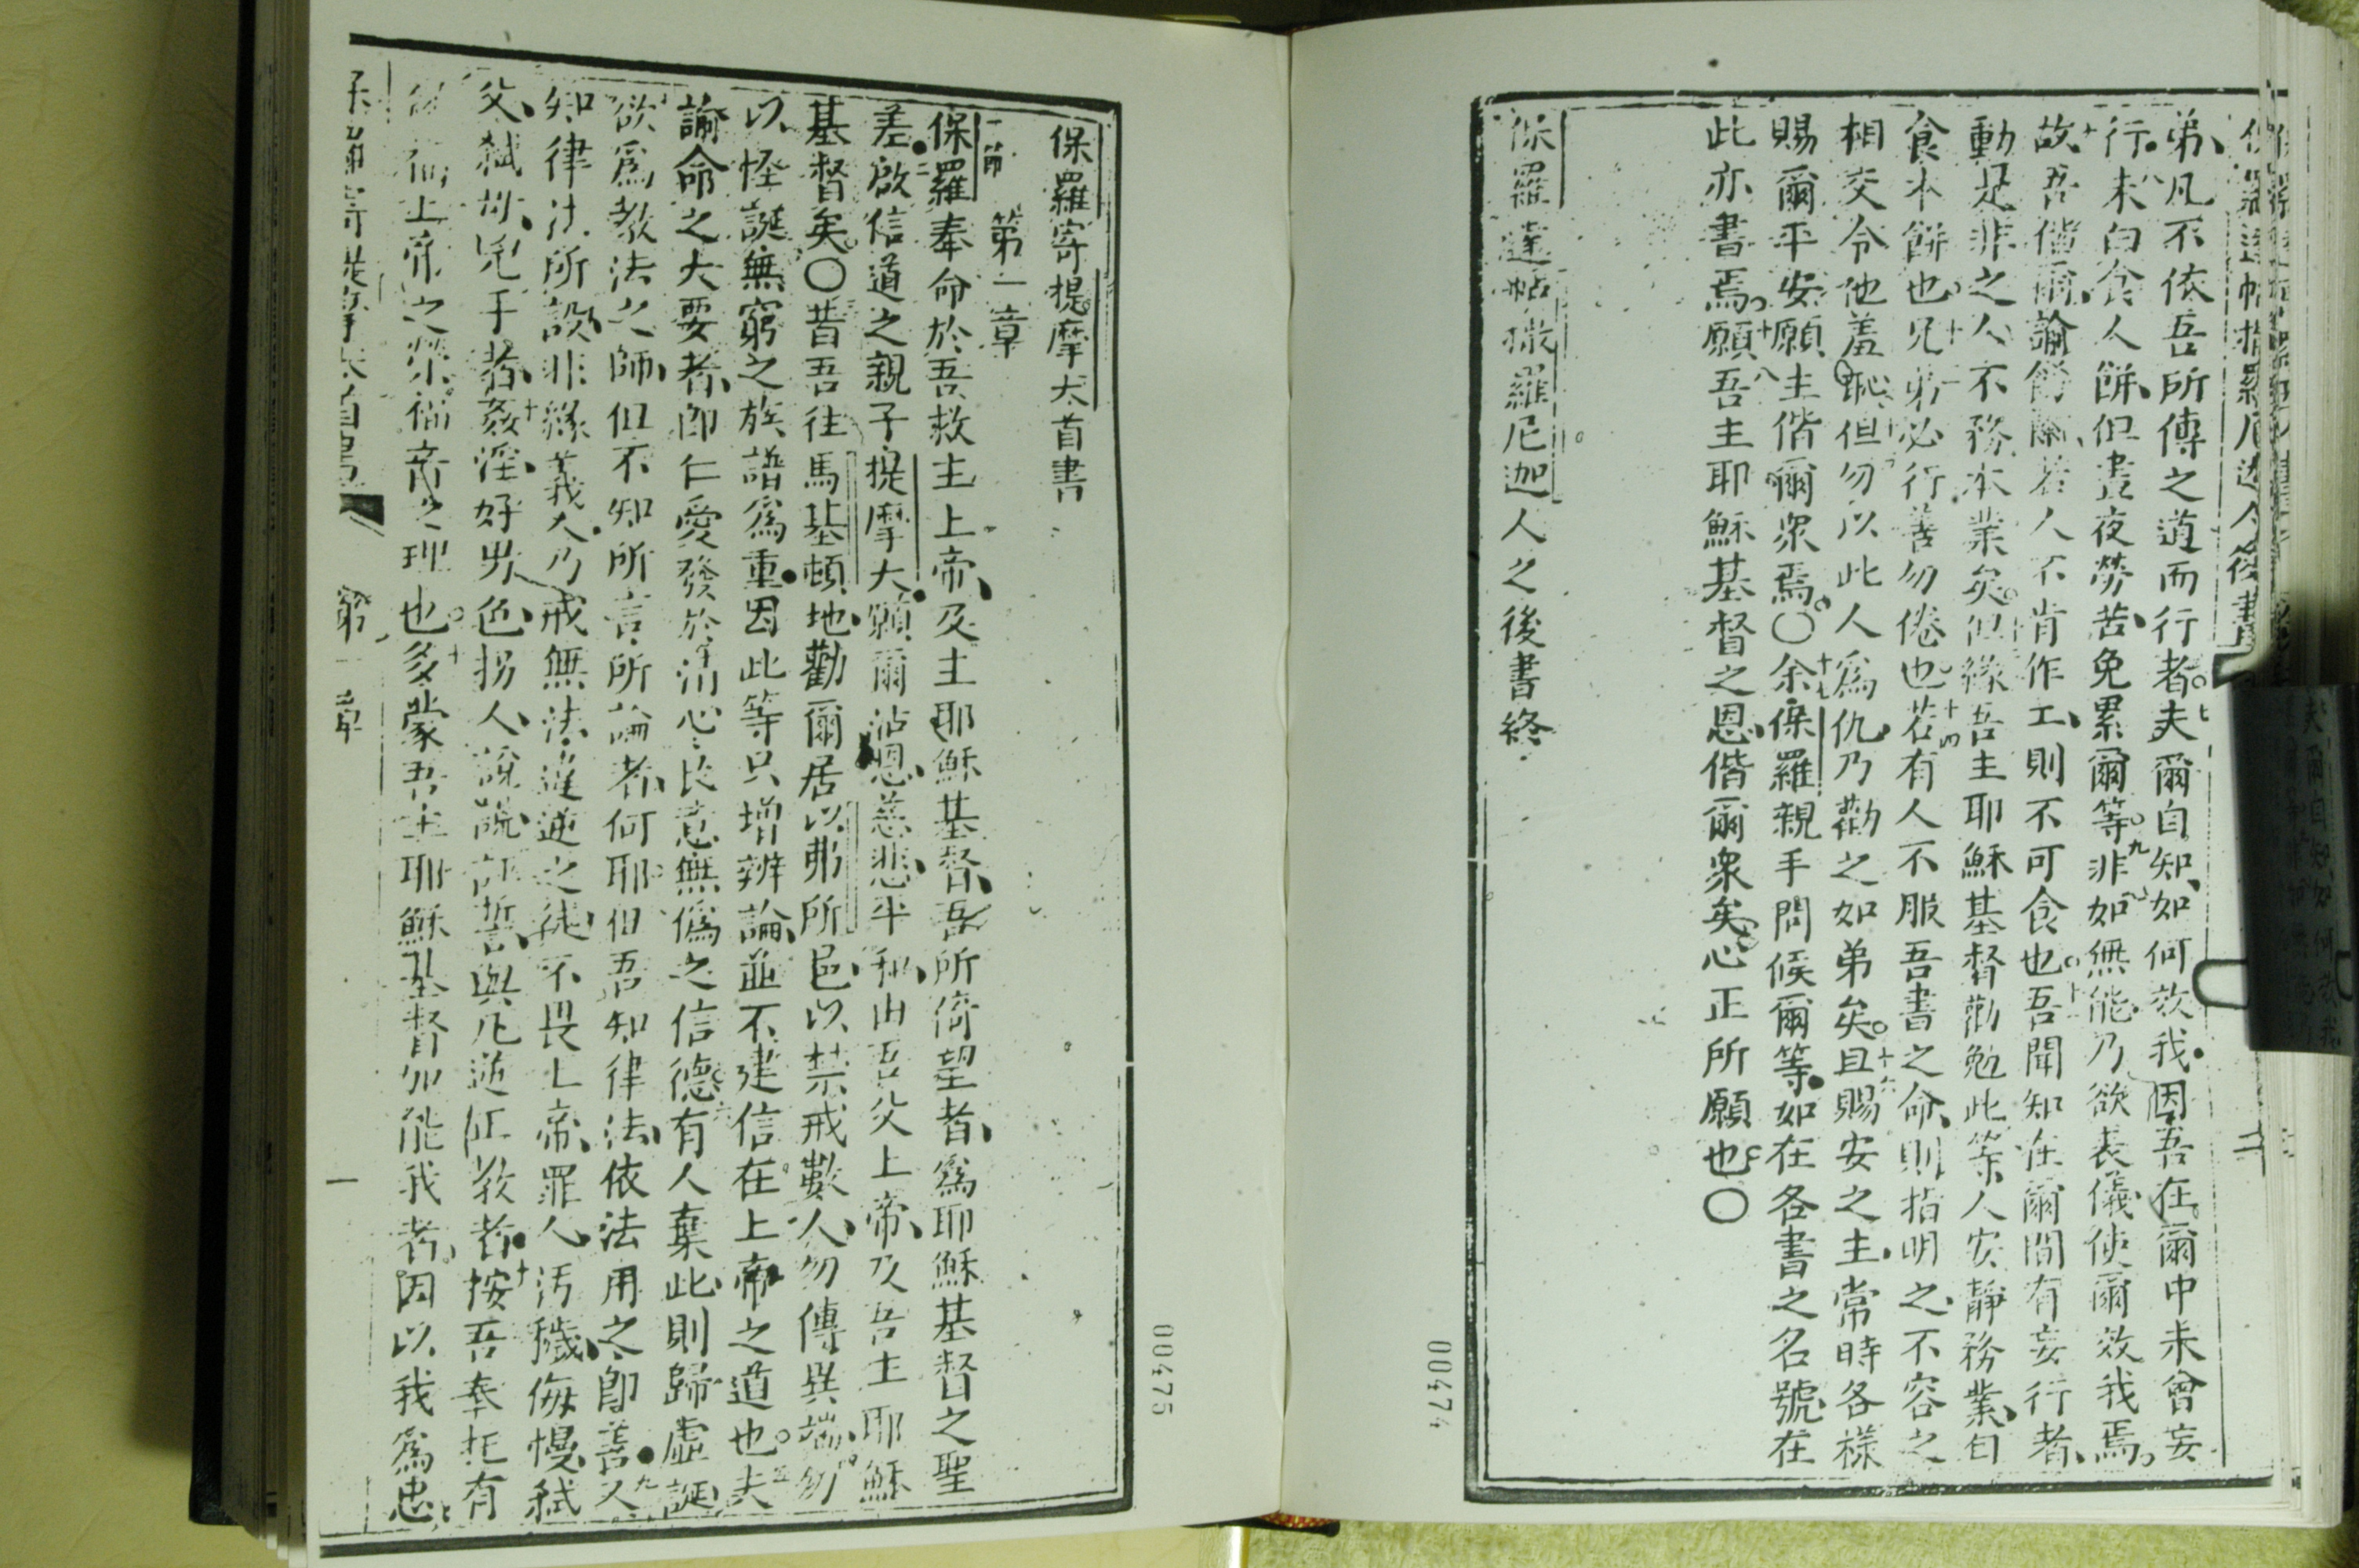 弟、凡不依吾所傳之道而行者。七夫爾自知、如何效我。因吾在爾中未曾妄
行。八未白食人餅、但晝夜勞苦、免累爾等。九非如無能、乃欲表儀、使爾效我焉。
十故吾偕爾、諭飭爾、若人不肯作工、則不可食也。十一吾聞知在爾間有妄行者、
動是非之人、不務本業矣。十二但緣吾主耶穌基督勸勉此等人、安靜務業、自
食本餅也。十三兄弟必行善勿倦也。十四若有人不服吾書之命、則指明之、不容之
相交、令他羞恥。十五但勿以此人為仇、乃勸之如弟矣。十六且賜安之主、常時各樣
賜爾平安、願主偕爾眾焉。〇十七余保羅親手問候爾等、如在各書之名號、在
此亦書焉。十八願吾主耶穌基督之恩、偕爾眾矣。心正所願也。〇
保羅達帖撒羅尼迦人之後書終
00474
00475
保羅寄提摩太首書
一節 第一章
保羅奉命於吾救主上帝、及主耶穌基督、吾所倚望者、為耶穌基督之聖
差。二啟信道之親子提摩太。願爾沾恩、慈悲、平和、由吾父上帝、及吾主耶穌
基督矣。〇昔吾往馬基頓地、勸爾居以弗所邑、以禁戒數人、勿傳異端、四勿
以怪誕無窮之族譜為重。因此等只增辨論、並不建信在上帝之道也。五夫
諭命之大要者、即仁愛發於清心、良意、無偽之信德。六有人棄此、則歸虛誕、
欲為教法之師、但不知所言、所論者何耶。但吾知律法、依法用之、即善。九又
知律法所設、非緣義人、乃戒無法違逆之徒、不畏上帝、罪人、污穢、侮慢、弒
父、弒母、兇手者、十姦淫、好男色、拐人、說謊、誑誓、與凡逆正教者。十一按吾奉托有
福上帝之榮福音之理也。十二多蒙吾主耶穌基督加能我者、因以我為忠、
保羅寄提摩太首書 第一章 一